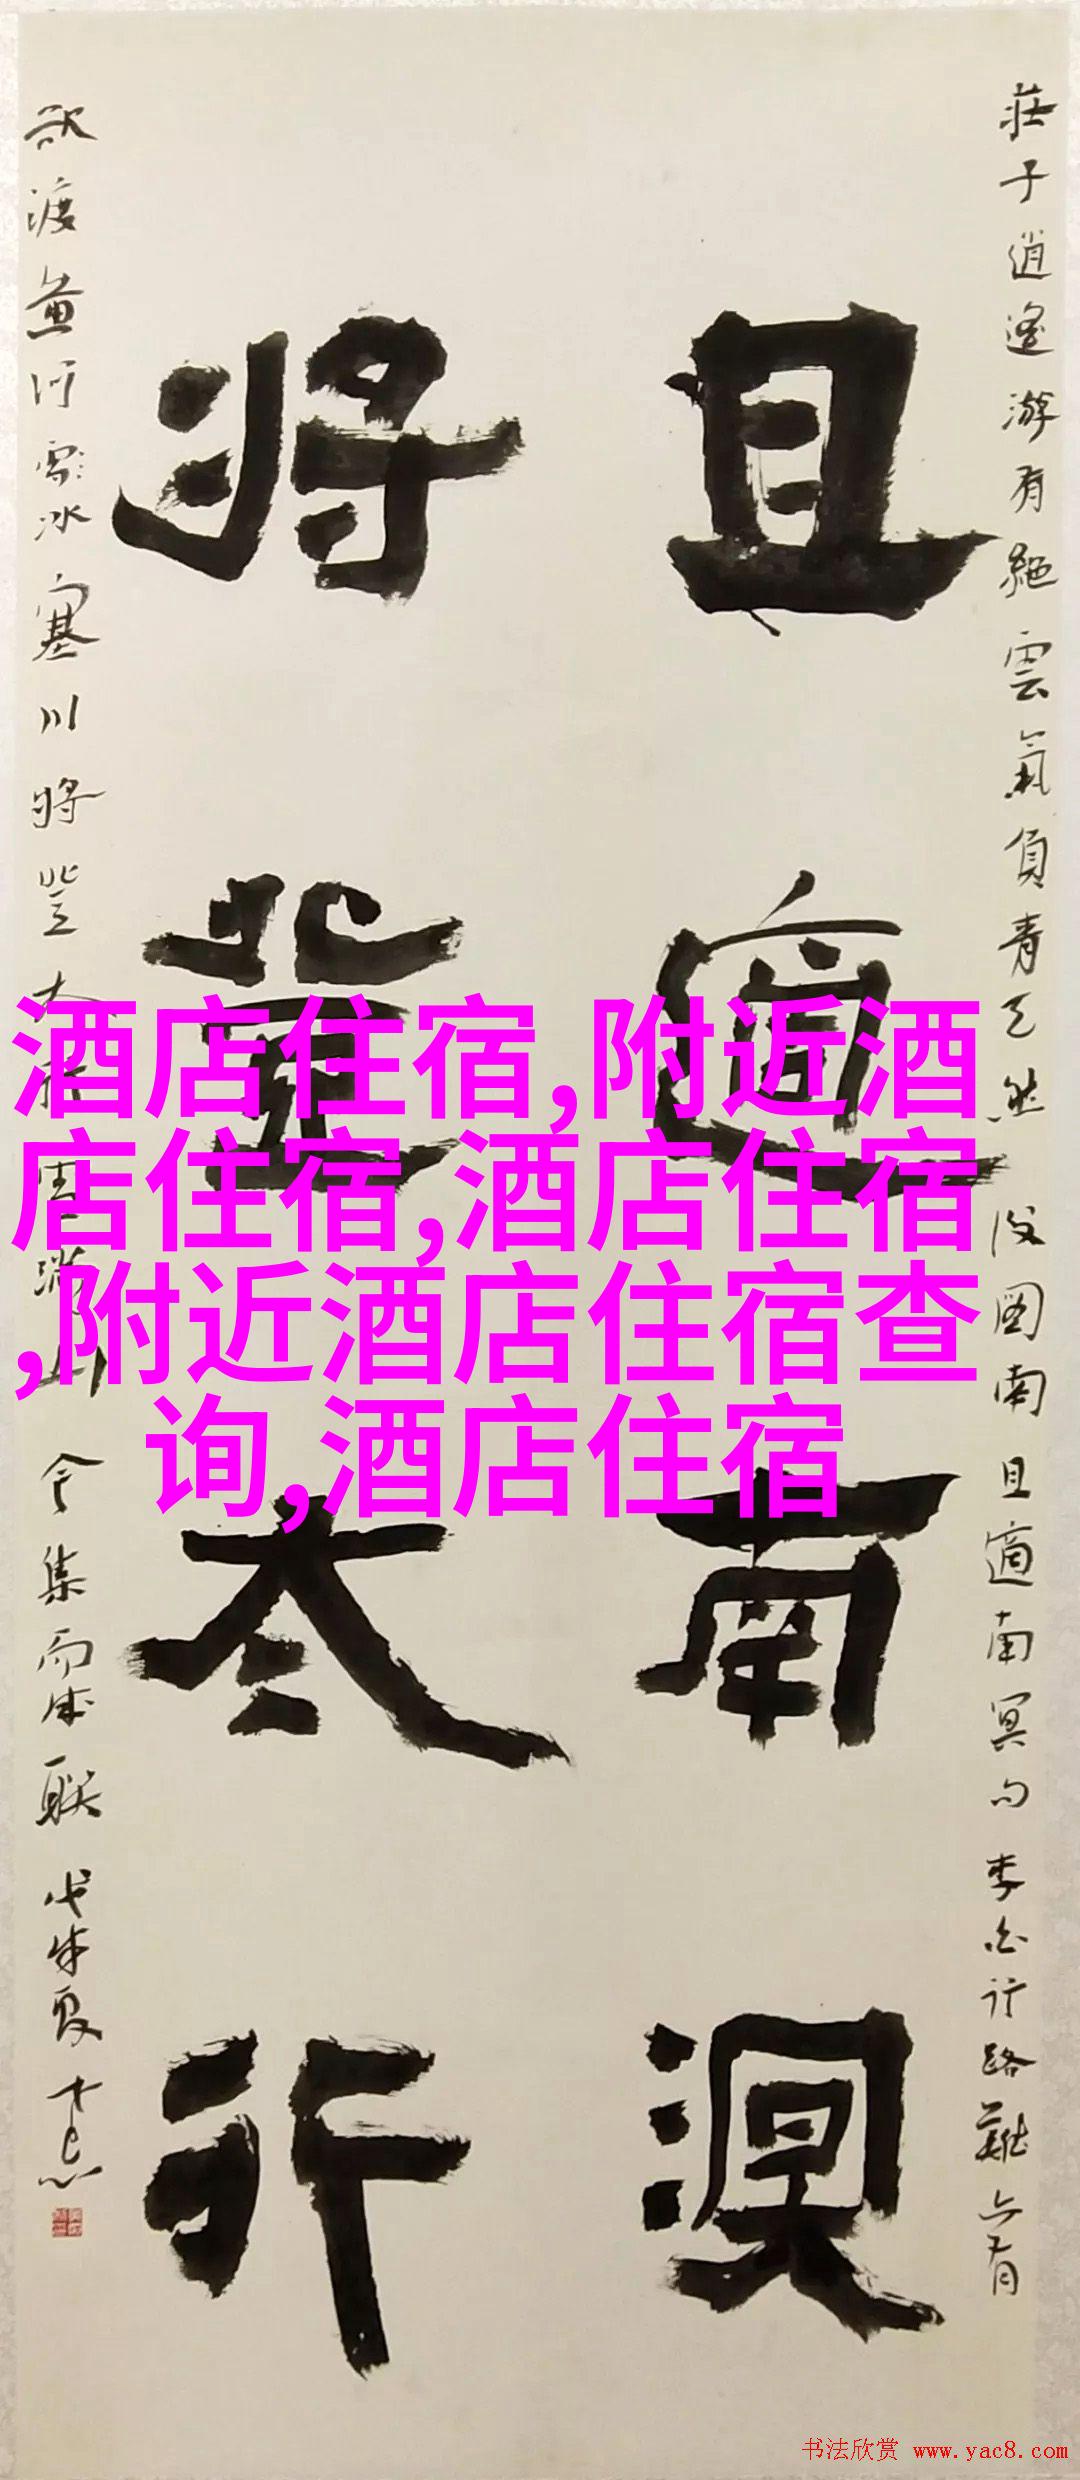 莊子逍遙游有絕雲氣負青天然後圖南且適南冥句李白行路難亦有
且適南溟
將登太行
欲渡黃河冰塞川將登太行雪滿山今集而成聯戊戌夏
酒店住宿,附近酒
店住宿,酒店住宿
,附近酒店住宿查
询,酒店住宿
书法欣赏 www.yac8.com